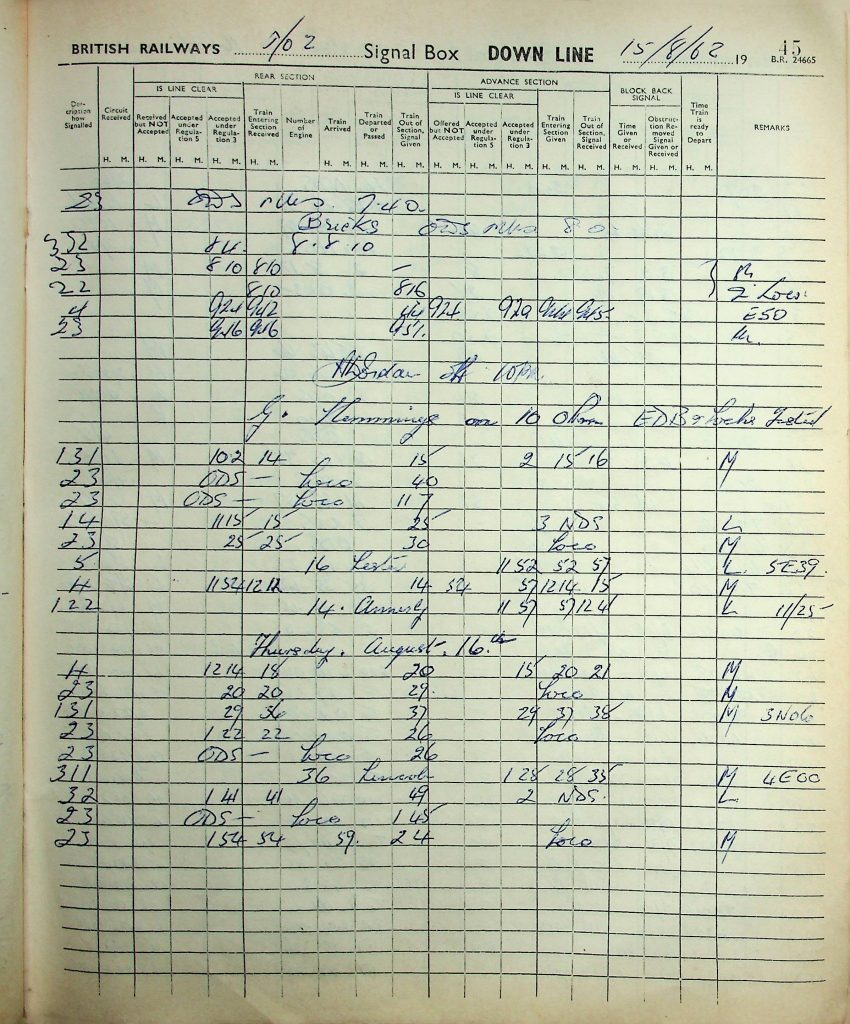 BRITISH RAILWAYS Signal Box DOWN LINE 15/8/62 19 45
B.R. 24665
REAR SECTION ADVANCE SECTION
IS LINE CLEAR IS LINE CLEAR BLOCK BACK SIGNAL
Description how Signalled Circuit Received Received but NOT Accepted Accepted under Regulation 5 Accepted under Regulation 3 Train Entering Section Received Number of Engine Train Arrived Train Departed or Passed Train Out of Section, Signal Given Offered but NOT Accepted Accepted under Regulation 5 Accepted under Regulation 3 Train Entering Section Given Train Out of Section, Signal Received Time Given or Received Obstruction Removed Signal Given or Received Time Train is ready to Depart REMARKS
H. M. H. M. H. M. H. M. H. M. H. M. H. M. H. M. H. M. H. M. H. M. H. M. H. M. H. M. H. M. H. M.
23 ODS 7.40.
Bricks ODS 8 0
352 84. 8. 8.10
23 810 810 — M
22 810 816 2 Locos
4 924 942 44 924 929 944 945 E50
23 946 946 951 M.
10 PM.
G. Hemmings on 10 EDB & Locks Tested
131 102 14 15 2 15 16 M
23 ODS — Loco 40
23 ODS — Loco 11 7
14 1115 15 25 3 NDS L
23 25 25 30 Loco M
5 16 1152 52 57 L 5E39.
4 1154 1212 14 54 57 1214 15 M
122 14. 1157 57 124 L 11/25
Thursday. August. 16.th
4 1214 18 20 15 20 21 M
23 20 20 29. Loco M
131 29 36 37 29 37 38 M
23 122 22 26 Loco
23 ODS — Loco 26
311 36 Lincoln 128 28 35 M 4E00
32 141 41 49 2 NDS. L
23 ODS — Loco 145
23 154 54 59. 24 Loco M